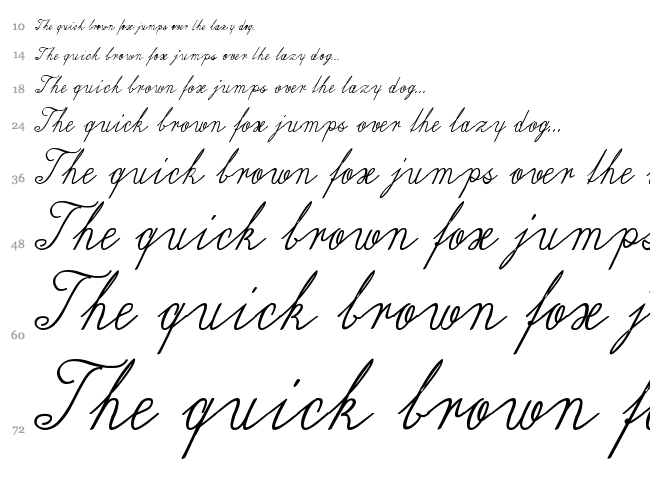 10 The quick brown fox jumps over the lazy dog.
14 The quick brown fox jumps over the lazy dog...
18 The quick brown fox jumps over the lazy dog...
24 The quick brown fox jumps over the lazy dog...
36 The quick brown fox jumps over the
48 The quick brown fox jumps
60 The quick brown fox j
72 The quick brown fo